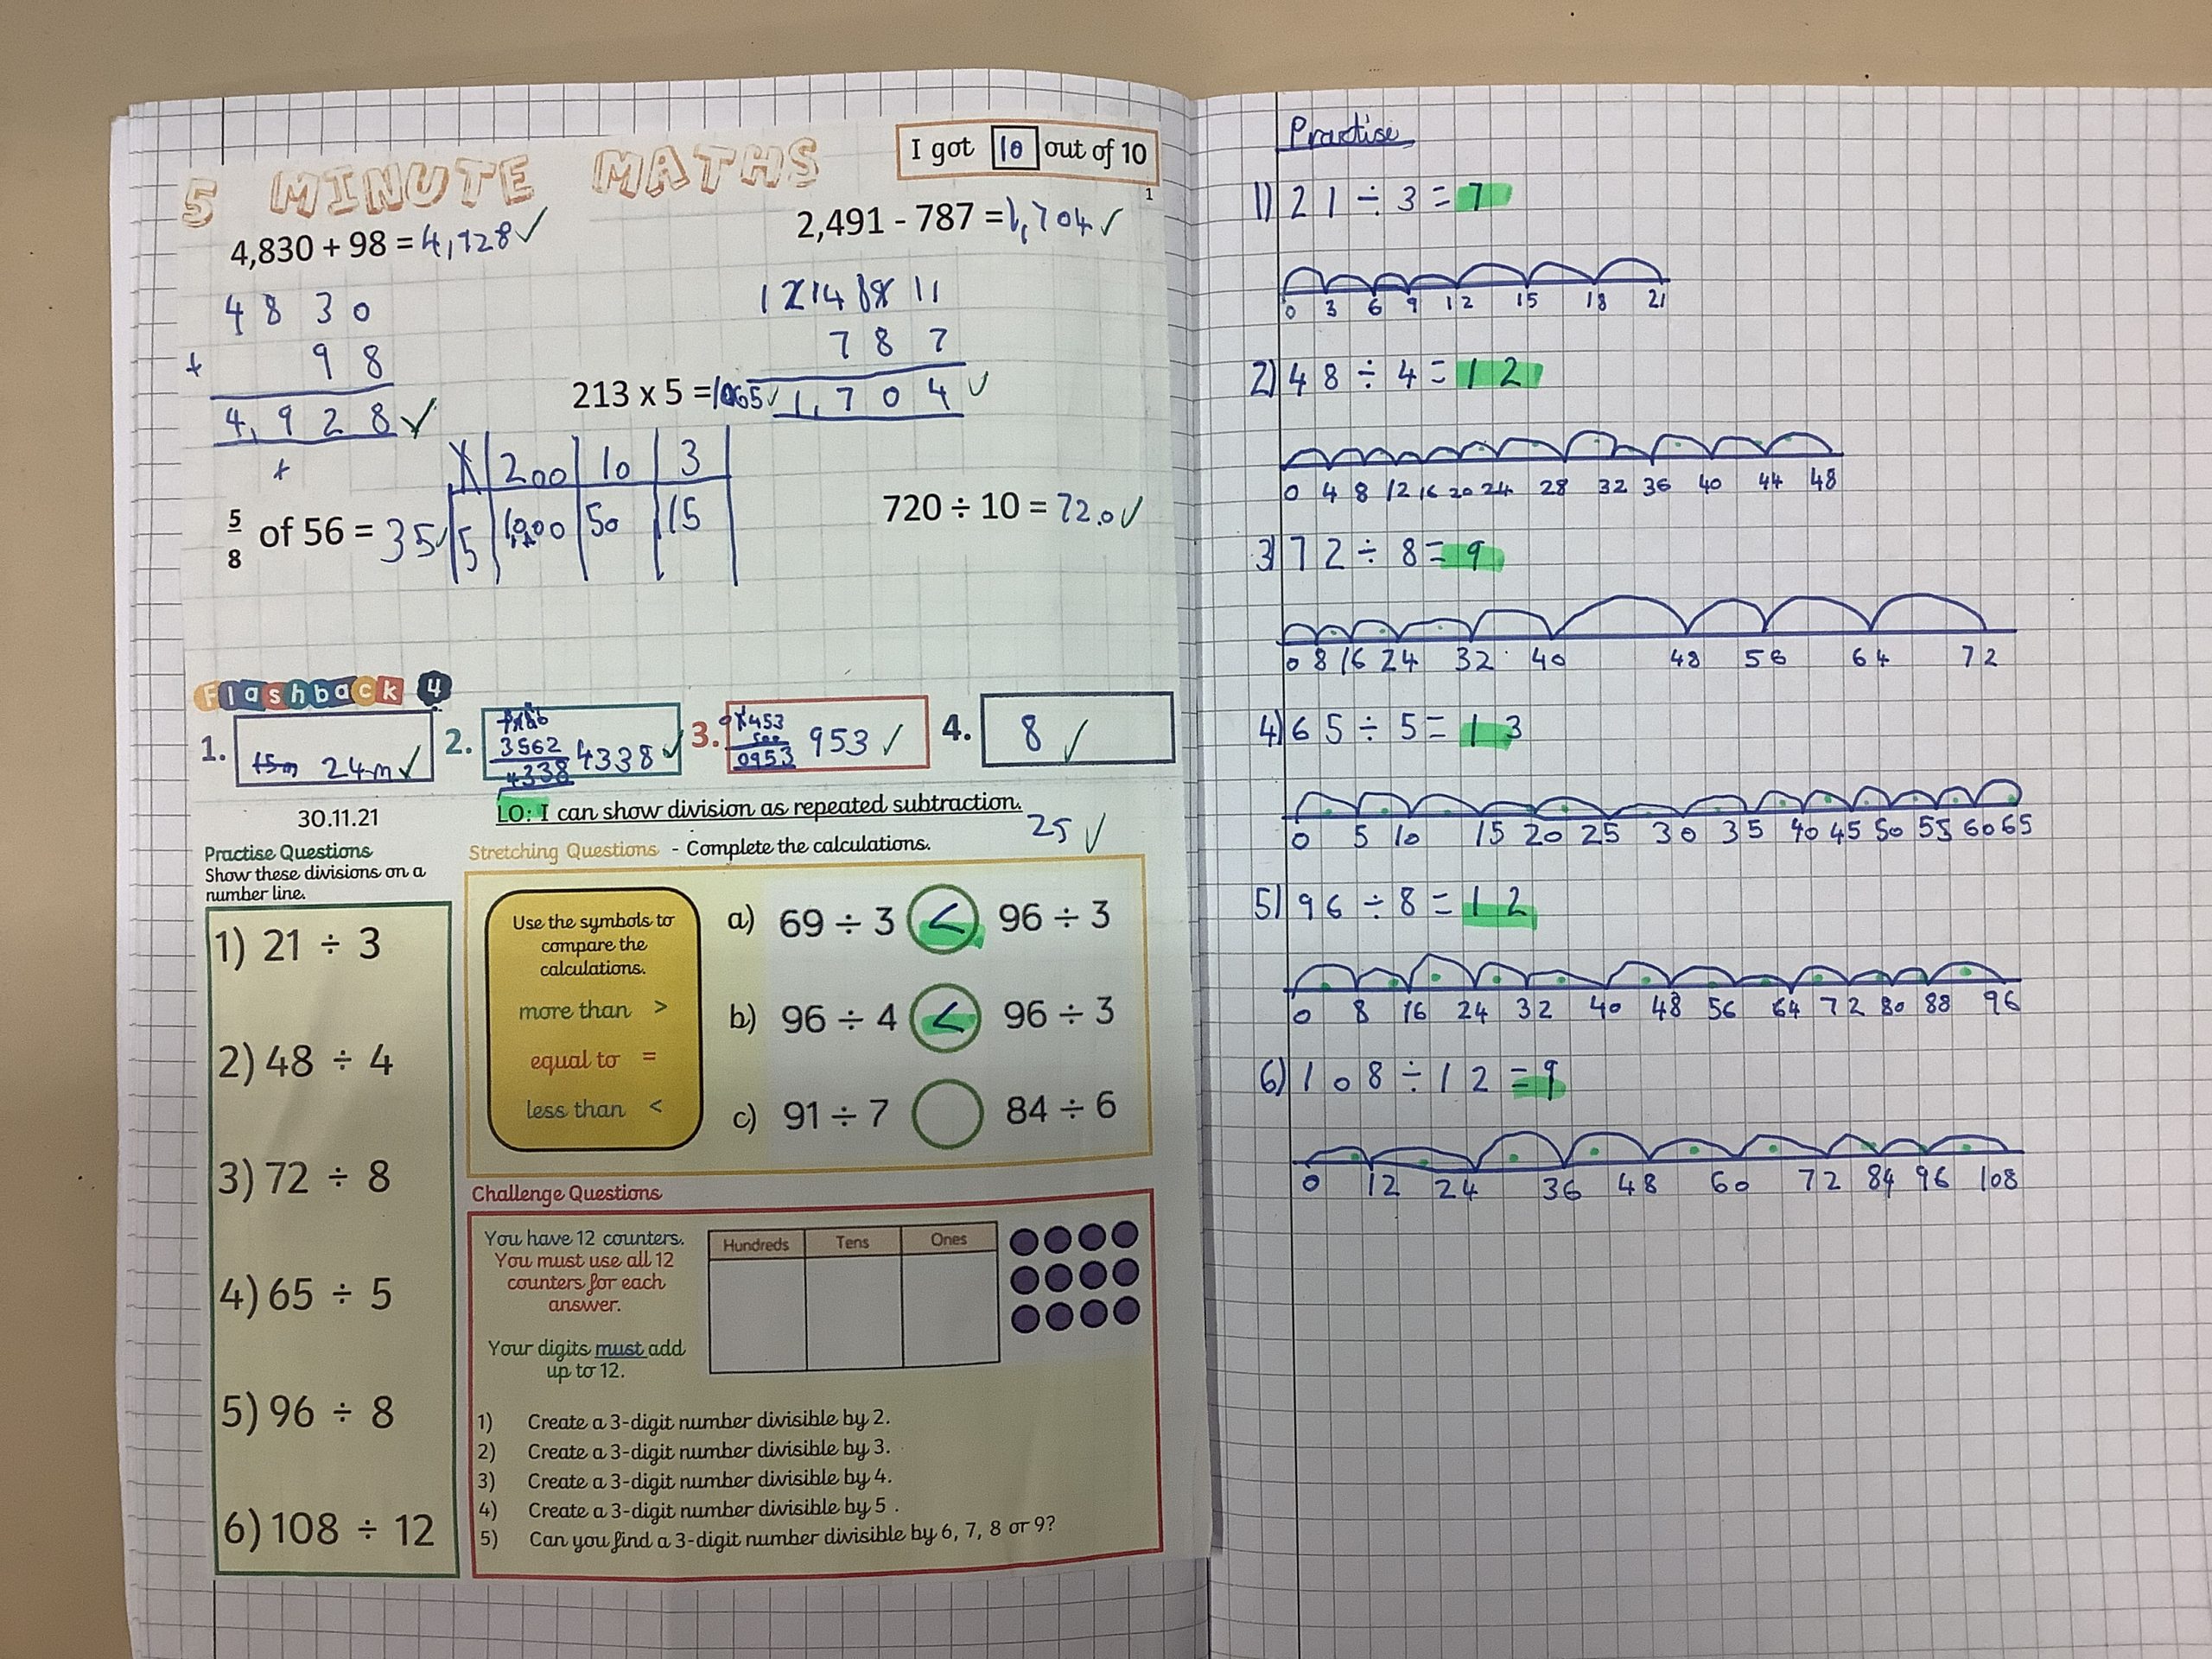 5 MINUTE MATHS
I got 10 out of 10
1
4,830 + 98 = 4,928 ✓
2,491 - 787 = 1,704 ✓
4 8 3 0
+ 9 8
4,9 2 8 ✓
+
7 8 7
1,7 0 4 ✓
213 x 5 = 1065 ✓
X 200 10 3
5 1,000 50 15
5/8 of 56 = 35 ✓
720 ÷ 10 = 72.0 ✓
Flashback 4
1. 15m 24m ✓
2. 3562 4338 4338 ✓
3. 500 0953 953 ✓
4. 8 ✓
30.11.21
LO: I can show division as repeated subtraction.
25 ✓
Practise Questions
Show these divisions on a
number line.
1) 21 ÷ 3
2) 48 ÷ 4
3) 72 ÷ 8
4) 65 ÷ 5
5) 96 ÷ 8
6) 108 ÷ 12
Stretching Questions - Complete the calculations.
Use the symbols to
compare the
calculations.
more than >
equal to =
less than <
a) 69 ÷ 3 < 96 ÷ 3
b) 96 ÷ 4 < 96 ÷ 3
c) 91 ÷ 7 84 ÷ 6
Challenge Questions
You have 12 counters.
You must use all 12
counters for each
answer.
Your digits must add
up to 12.
Hundreds Tens Ones
1) Create a 3-digit number divisible by 2.
2) Create a 3-digit number divisible by 3.
3) Create a 3-digit number divisible by 4.
4) Create a 3-digit number divisible by 5 .
5) Can you find a 3-digit number divisible by 6, 7, 8 or 9?
Practise
1) 21 ÷ 3 = 7
0 3 6 9 12 15 18 21
2) 48 ÷ 4 = 12
0 4 8 12 16 20 24 28 32 36 40 44 48
3) 72 ÷ 8 = 9
0 8 16 24 32 40 48 56 64 72
4) 65 ÷ 5 = 13
0 5 10 15 20 25 30 35 40 45 50 55 60 65
5) 96 ÷ 8 = 12
0 8 16 24 32 40 48 56 64 72 80 88 96
6) 108 ÷ 12 = 9
0 12 24 36 48 60 72 84 96 108